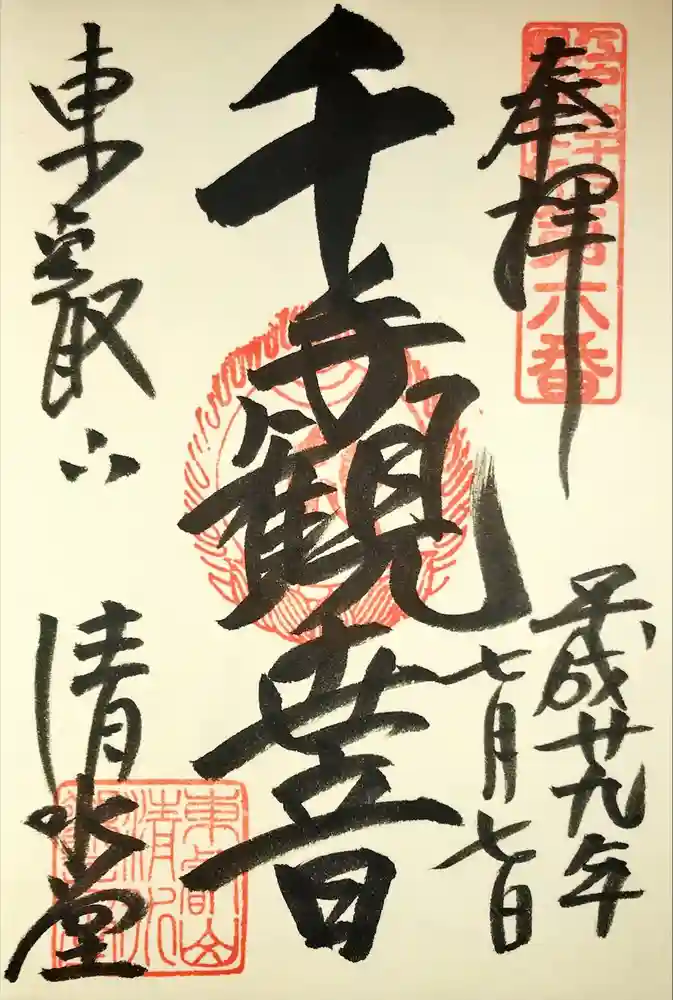 奉拝
第六番
平成廿九年
七月七日
千手観世音
東叡山
清水堂
東叡山
清水